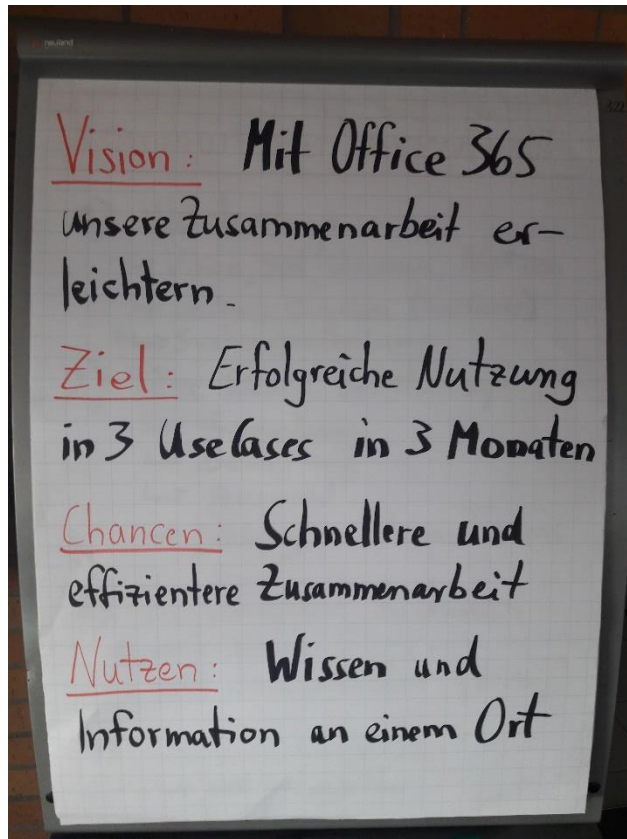 neuland
Vision: Mit Office 365
unsere Zusammenarbeit er-
leichtern.
Ziel: Erfolgreiche Nutzung
in 3 UseCases in 3 Monaten
Chancen: Schnellere und
effizientere Zusammenarbeit
Nutzen: Wissen und
Information an einem Ort